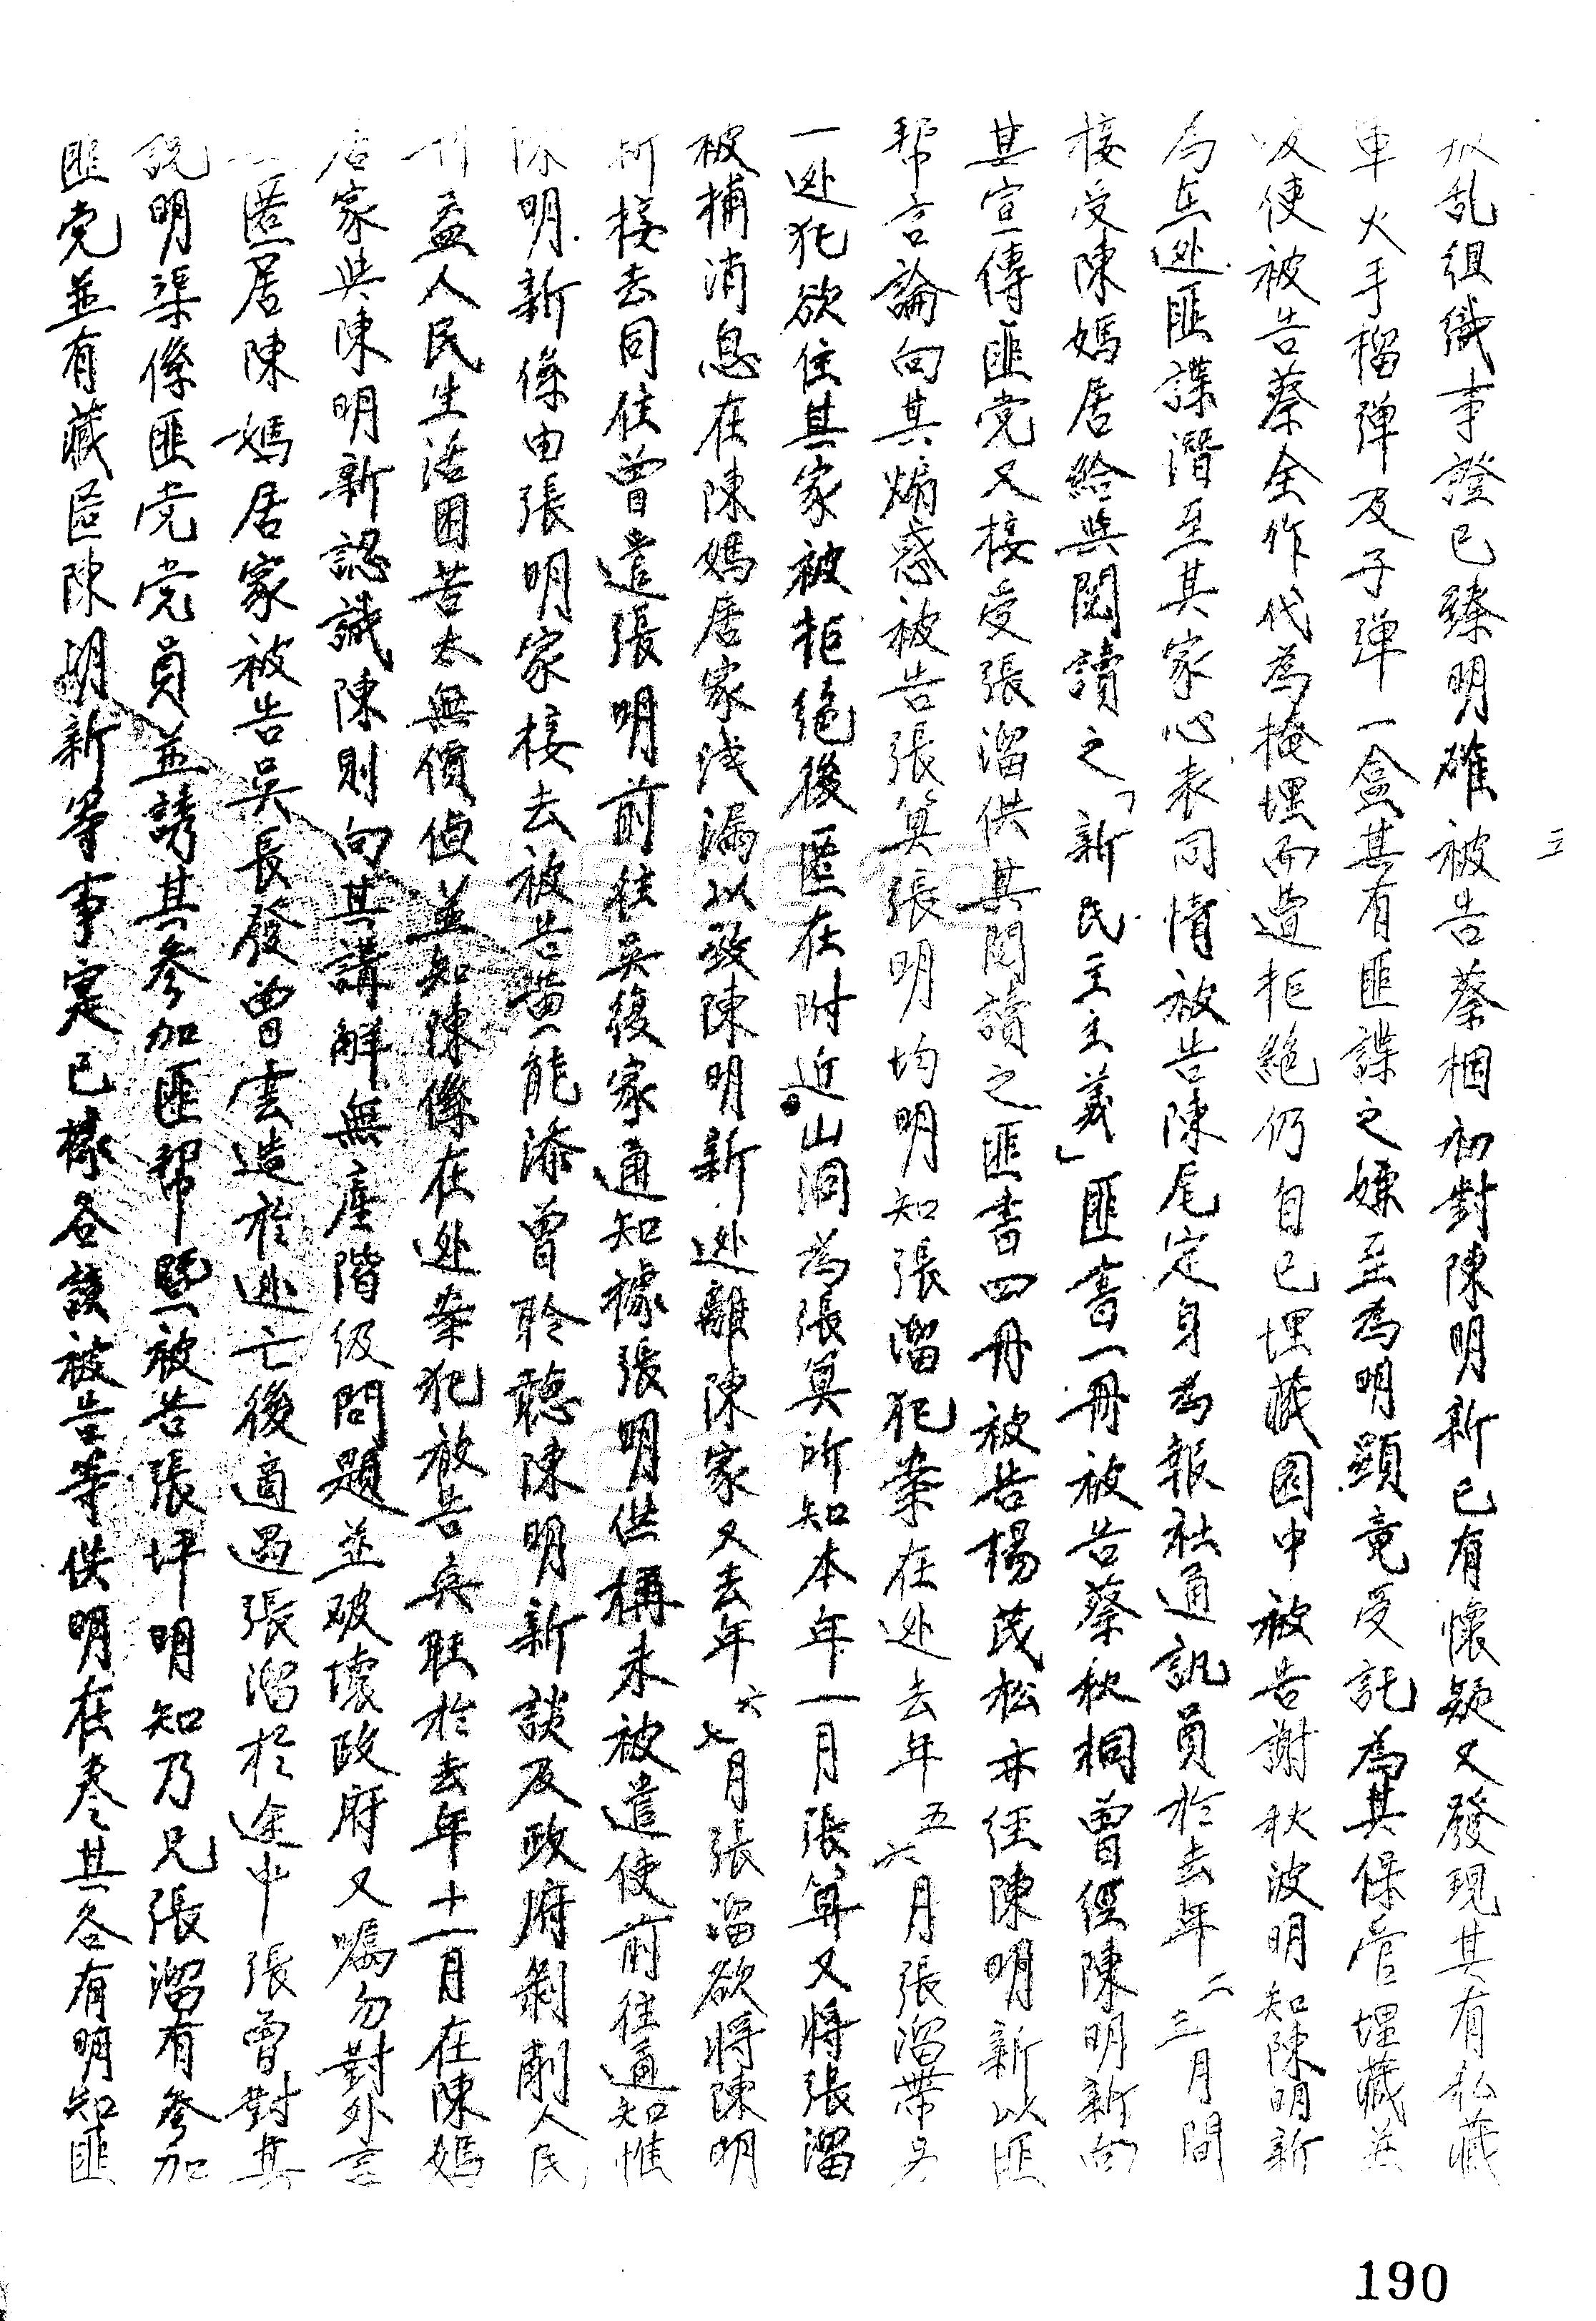 三
叛乱組織事證已臻明確被告蔡梱初對陳明新已有懷疑又發現其有私藏
軍火手榴弹及子弹一盒其有匪諜之嫌至為明顯竟受託為其保管埋藏並
唆使被告蔡全作代為掩埋而遭拒絕仍自己埋藏園中被告謝秋波明知陳明新
為在逃匪諜潛至其家心表同情被告陳尾定身為報社通訊員於去年二三月間
接受陳媽居給與閱讀之「新民主主義」匪書一冊被告蔡秋桐曾經陳明新向
其宣傳匪党又接受張溜供其閱讀之匪書四冊被告楊茂松亦经陳明新以匪
帮言論向其煽惑被告張算張明均明知張溜犯案在逃去年五六月張溜帶另
一逃犯欲住其家被拒絕後匿在附近山洞為張算所知本年一月張算又將張溜
被捕消息在陳媽居家洩漏以致陳明新逃離陳家又去年六七月張溜欲將陳明
新接去同住曾遣張明前往吳復家通知據張明供稱未被遣使前往通知惟
陳明新係由張明家接去被告黃能添曾聆聽陳明新談及政府剝削人民
利益人民生活困苦太無價值並知陳係在逃案犯被告吳駐於去年十一月在陳媽
居家與陳明新認識陳則向其講解無產階級問題並破壞政府又囑勿對外言
匿居陳媽居家被告吳長發曾雲造於逃亡後適遇張溜於途中張曾對其
說明渠係匪党党員並誘其参加匪帮暨被告張坪明知乃兄張溜有参加
匪党並有藏匿陳明新等事寔已據各該被告等供明在卷其各有明知匪
190